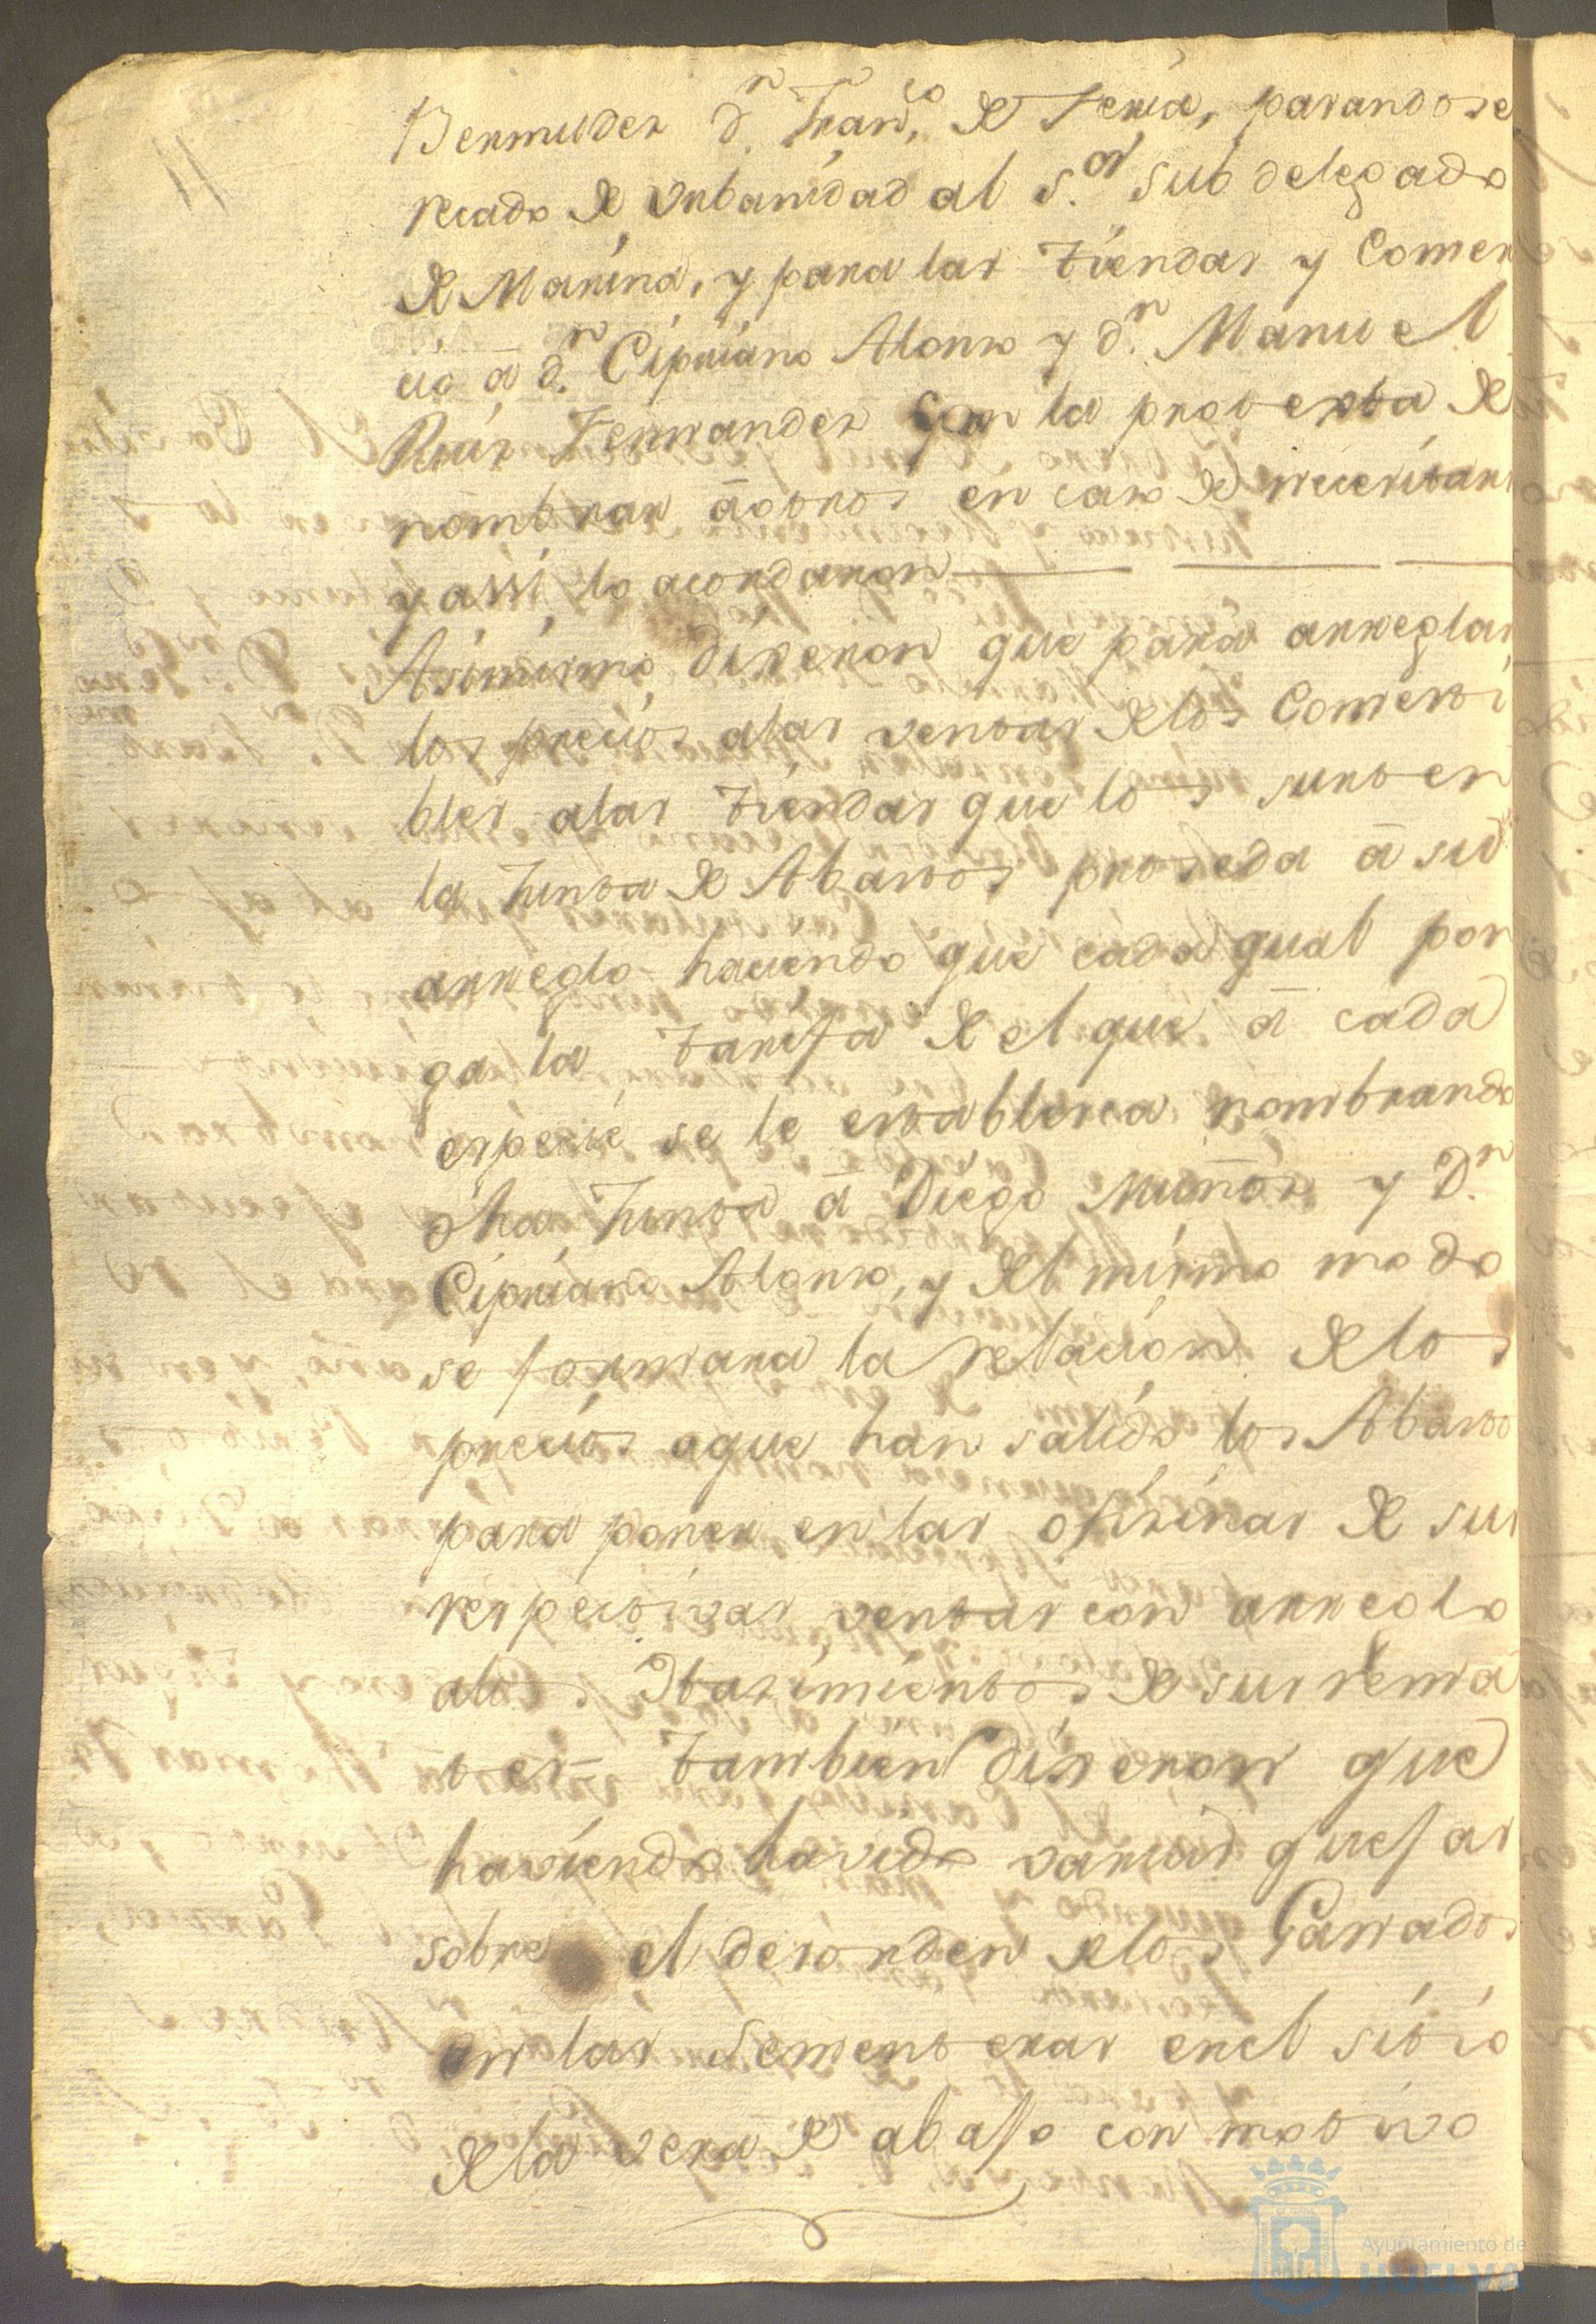 Bermudez d.n Fran.co de Feria, pasandose
recado de vrbanidad al s.or subdelegado
de Marina, y para las tiendas y Comer
cio â d.n Cipriano Alonso y d.n Manuel
Ruiz Fernandez con la protexta de
nombrar âotros en caso de necesitarse
y assi lo acordaron
Asimismo dixeron que para arreglar
los precios alas ventas delos Comesti
bles alas tiendas que los surten
la Junta de Abastos proseda â su
arreglo haciendo que cada qual pon
ga la tarifa de el que â cada
especie se le establesca nombrando
dha Junta â Diego Muñoz y D.n
Cipriano Alonso, y del mismo modo
se formara la relacion delos
precios aque han salido los Abasto
para poner en las ofisinas de sus
respectivas ventas con arreglo
alos Otasimientos de sus rema
tes= tambien dixeron que
haviendo havido varias quefas
sobre el desorden delos Ganados
en las sementeras enel sitio
dela vera de abaffo con motivo
Ayuntamiento de
HUELVA